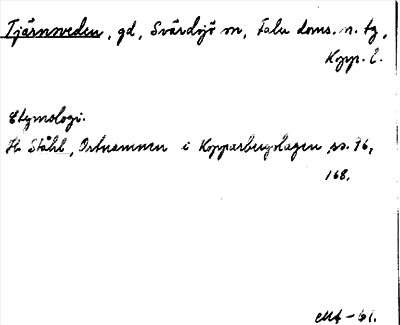 Tjärnsveden, gd, Svärdsjö sn, Falu doms. n. tg,
Kopp. l.
Etymologi.
H. Ståhl, Ortnamnen i Kopparbergslagen, ss. 76,
168.
-61.